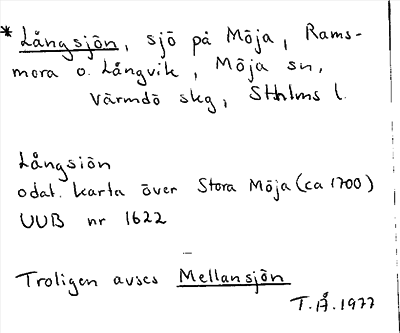 * Långsjön, sjö på Möja, Rams-
mora o. Långvik, Möja sn,
Värmdö skg, Sthlms l.
Långsiön
odat. karta över Stora Möja (ca 1700)
UUB nr 1622
Troligen avses Mellansjön
T.Å. 1977